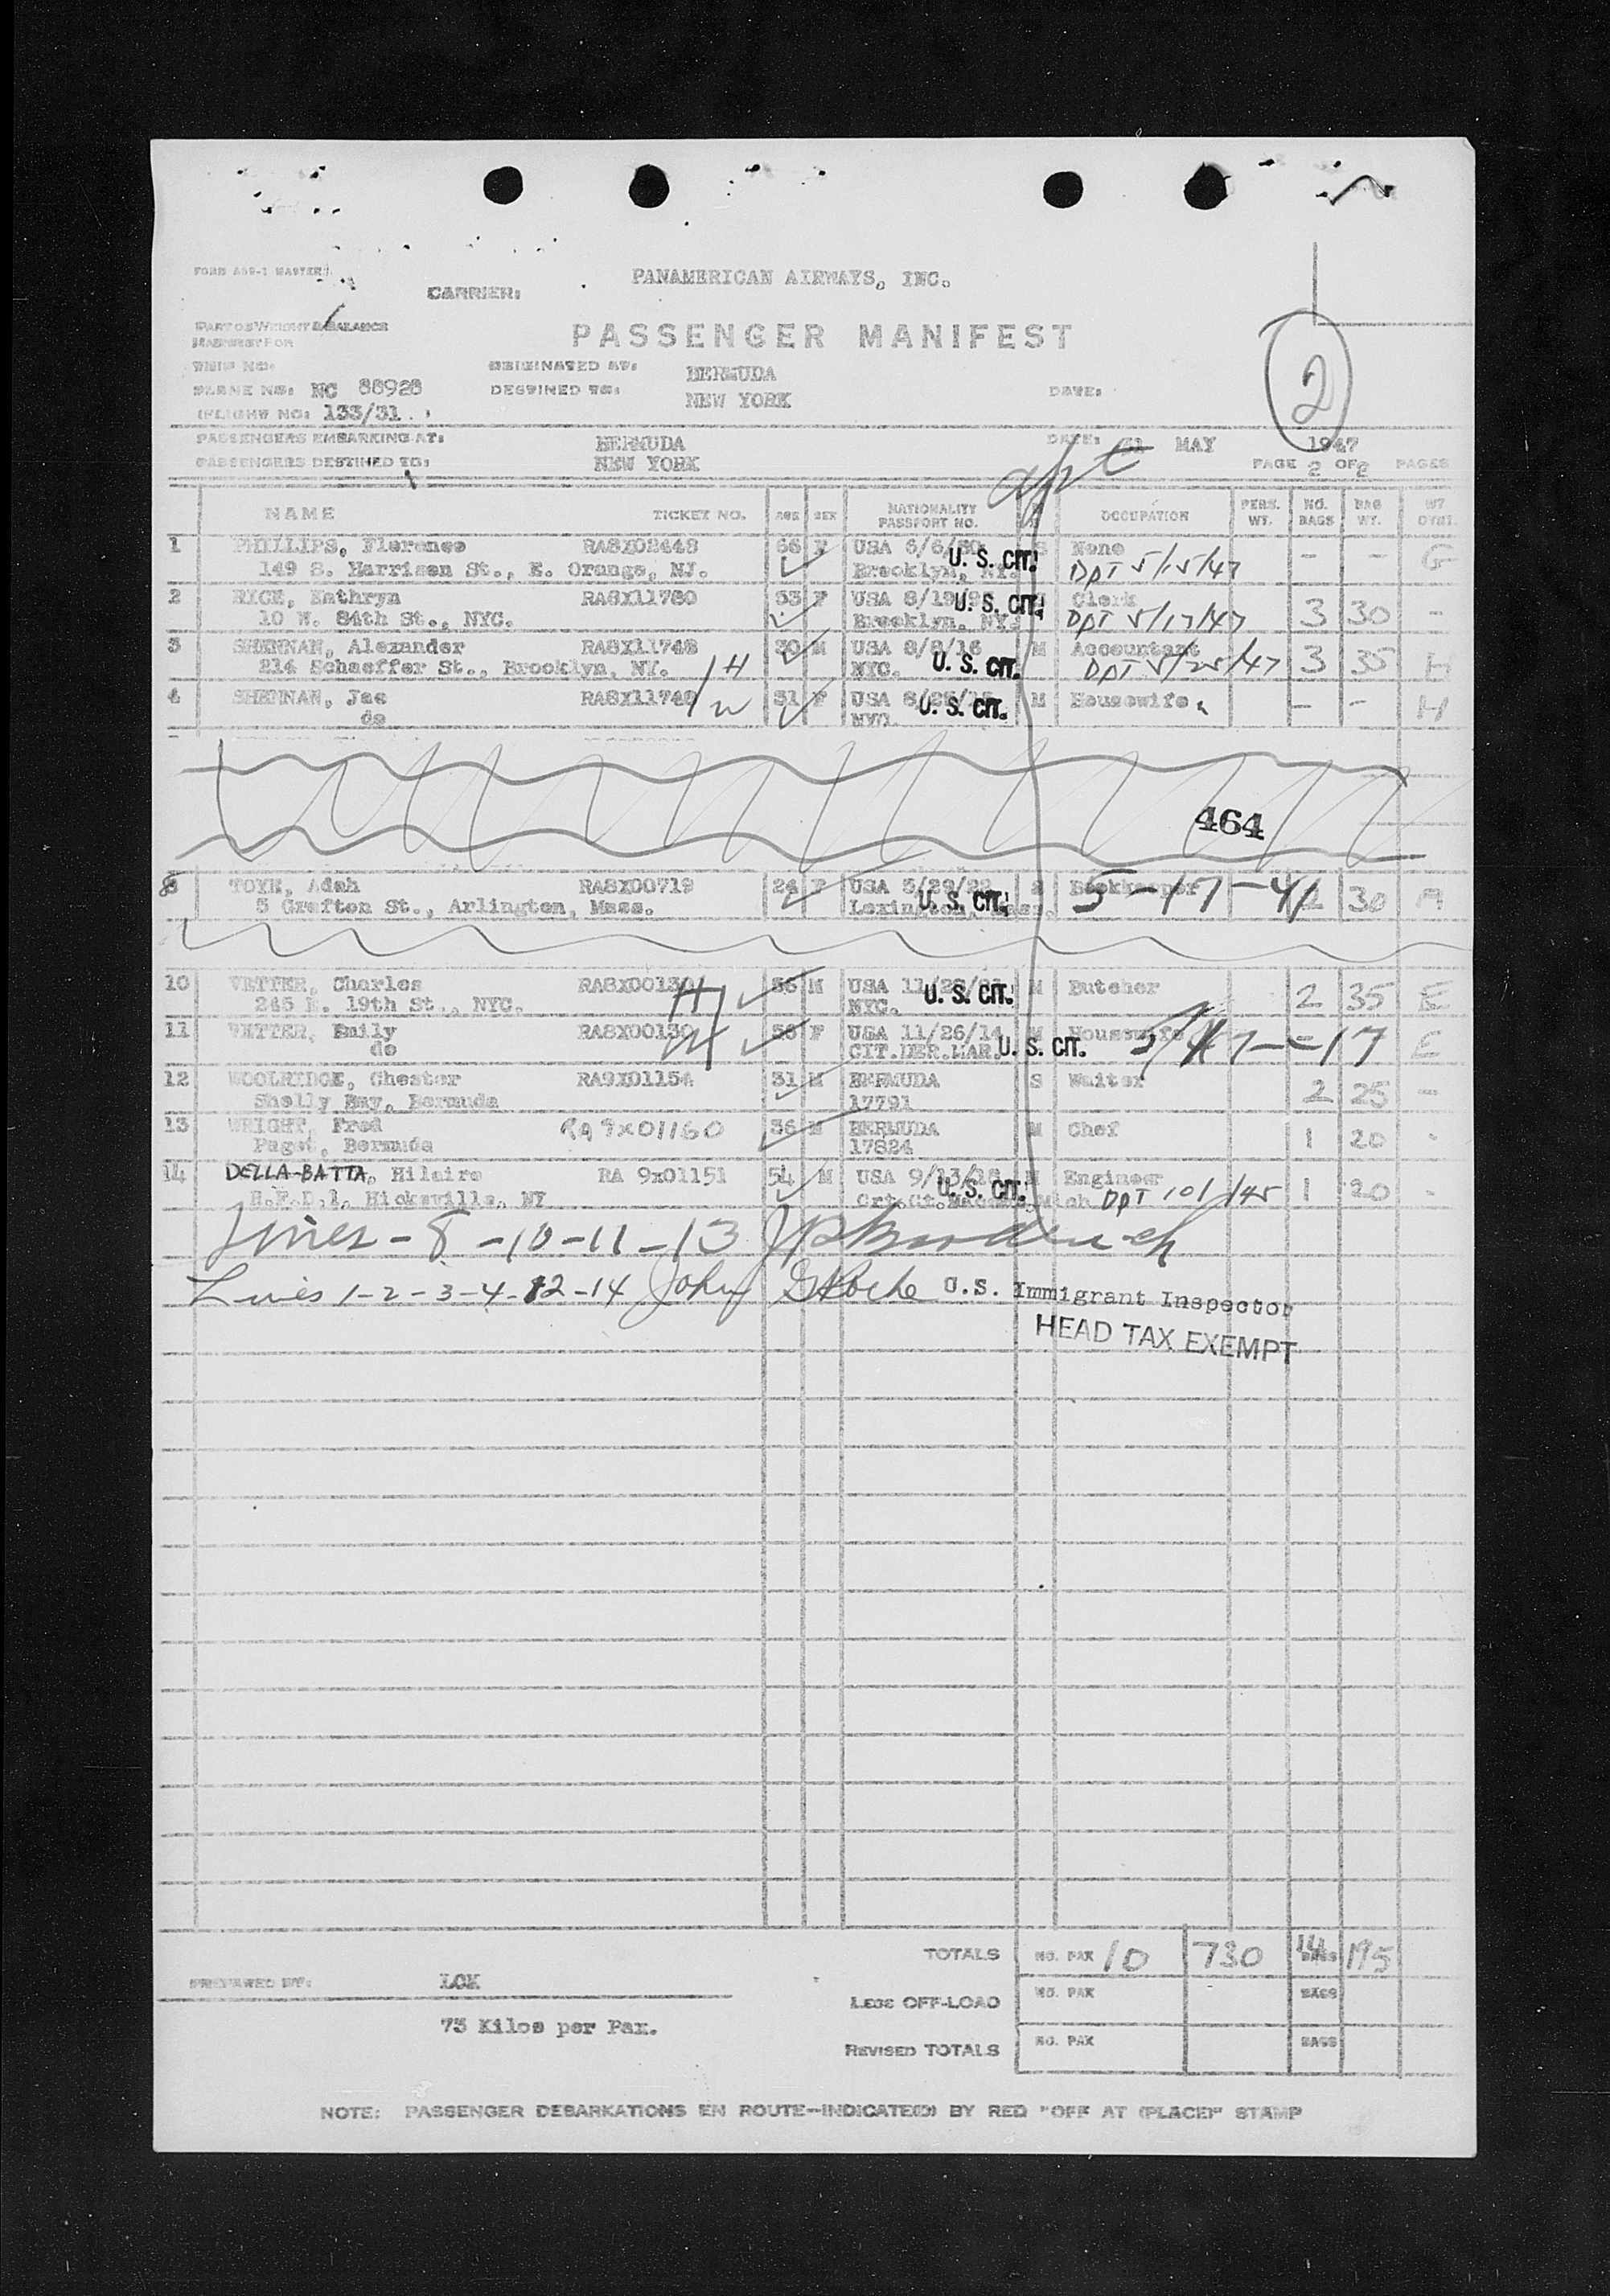 FORM A59-1 MASTER
CARRIER: PANAMERICAN AIRWAYS, INC.
PART OF WEIGHT & BALANCE
MANIFEST FOR
PASSENGER MANIFEST
2
TRIP NO: ORIGINATED AT: BERMUDA
PLANE NO: NC 88928 DESTINED TO: NEW YORK DATE:
(FLIGHT NO: 133/31
PASSENGERS EMBARKING AT: BERMUDA DATE: 31 MAY 1947
PASSENGERS DESTINED TO: NEW YORK PAGE 2 OF 2 PAGES
apt
NAME TICKET NO. AGE SEX NATIONALITY PASSPORT NO. OCCUPATION PERS. WT. NO. BAGS BAG WT.
1 PHILLIPS, Florence RA8X02448 66 F USA 6/6/80 U. S. CIT. S None - - G
149 S. Harrison St., E. Orange, NJ. Brooklyn, NY. DPT 5/15/47
2 RICE, Kathryn RA8X11780 53 F USA 8/19/9 U. S. CIT. Clerk 3 30 -
10 W. 84th St., NYC. Brooklyn, NY. DPT 5/17/47
3 SHENNAN, Alexander RA8X11748 30 M USA 8/8/16 M Accountant 3 35 H
214 Schaeffer St., Brooklyn, NY. /H NYC. U. S. CIT. DPT 5/25/47
4 SHENNAN, Jae RA8X11748 /W 31 F USA 8/25/15 U. S. CIT. M Housewife - - H
do NYC.
464
8 TOYE, Adah RA8X00719 24 F USA 5/29/22 S Bookkeeper 2 30 A
5 Grafton St., Arlington, Mass. Lexington, Mass. U. S. CIT. 5-17-41
10 VETTER, Charles RA8X00130 H 56 M USA 11/26/ U. S. CIT. M Butcher 2 35 E
245 E. 19th St., NYC. NYC.
11 VETTER, Emily RA8X00130 W 56 F USA 11/26/14 M Housewife E
do CIT.DER.MAR. U. S. CIT.
12 WOOLRIDGE, Chester RA9X01154 31 M BERMUDA S Waiter 2 25 -
Shelly Bay, Bermuda 17791
13 WRIGHT, Fred RA9X01160 36 M BERMUDA M Chef 1 20 -
Paget, Bermuda 17824
14 DELLA-BATTA, Hilaire RA 9x01151 54 M USA 9/13/18 M Engineer 1 20 -
R.F.D.1, Hicksville, NY Crt.Ct. Mich U. S. CIT. DPT 101/145
Lines - 8 - 10 - 11 - 13
Lines 1-2-3-4-12-14 John U.S. Immigrant Inspector
HEAD TAX EXEMPT
TOTALS NO. PAX 10 730 14 BAGS 195
PREPARED BY: LCK
LESS OFF-LOAD NO. PAX BAGS
75 Kilos per Pax.
REVISED TOTALS NO. PAX BAGS
NOTE: PASSENGER DEBARKATIONS EN ROUTE—INDICATE(D) BY RED "OFF AT (PLACE)" STAMP